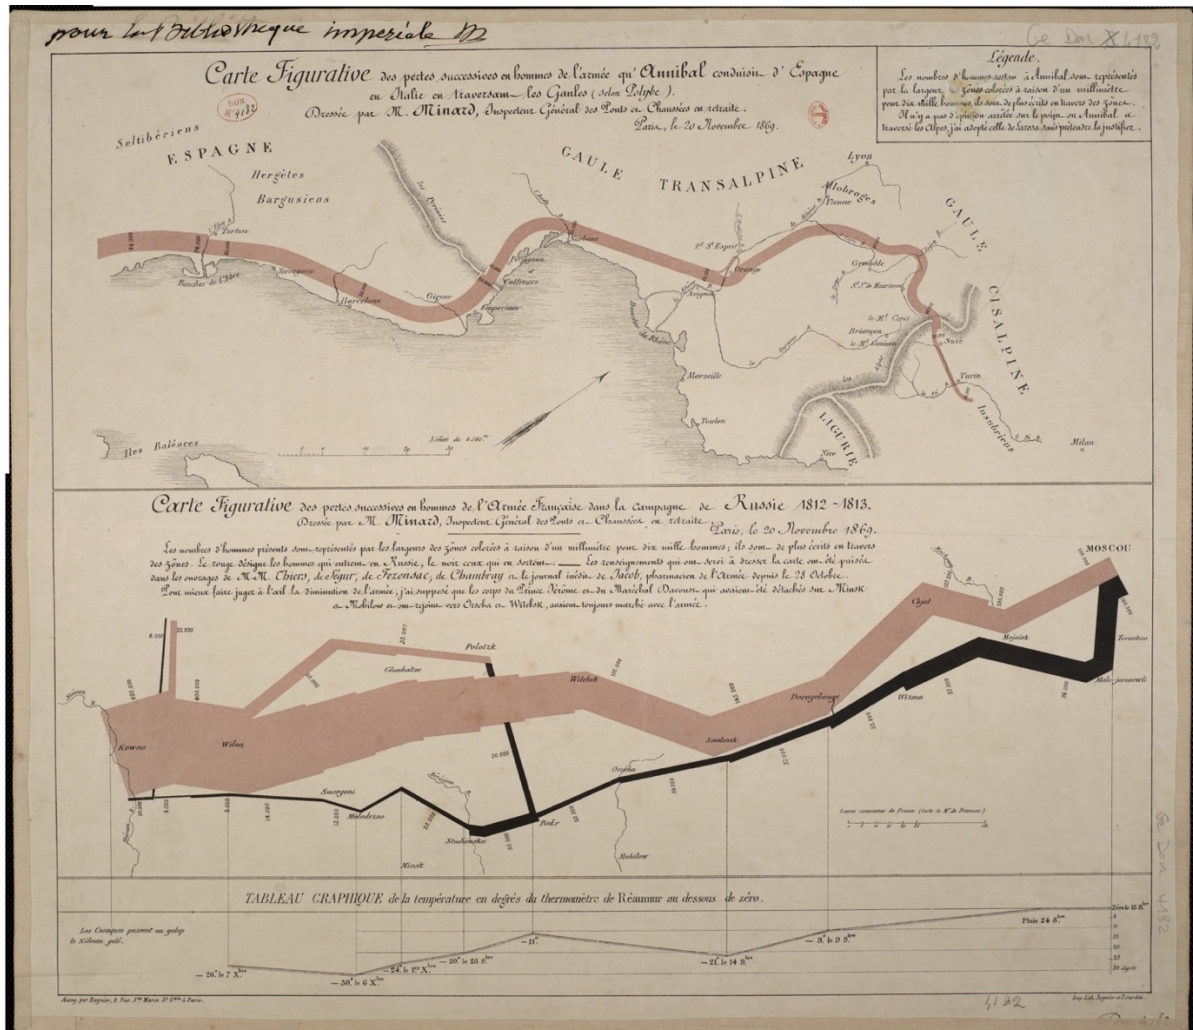 pour la Bibliothèque impériale
Ge Don 4182
Carte Figurative des pertes successives en hommes de l'armée qu'Annibal conduisit d'Espagne
en Italie en traversant les Gaules (selon Polybe).
Dressée par M. Minard, Inspecteur Général des Ponts et Chaussées en retraite.
Paris, le 20 Novembre 1869.
DON
4182
Légende.
Les nombres d'hommes restant à Annibal sont représentés
par la largeur des zones colorées à raison d'un millimètre
pour dix mille hommes; ils sont de plus écrits en travers des zones.
Il n'y a pas d'opinion arrêtée sur le point où Annibal a
traversé les Alpes, j'ai adopté celle de Larosa, sans prétendre la justifier.
Seltibériens
ESPAGNE
Hergètes
Bargusiens
les Pyrénées
GAULE TRANSALPINE
Lyon
Allobroges
Vienne
GAULE CISALPINE
Tortose
Bouches de l'Ebre
Tarragone
Barcelone
Girone
Emporium
Collioure
Perpignan
Narbonne
Pt. St. Esprit
Orange
Avignon
Bouches du Rhône
Grenoble
St. J. de Maurienne
le Mt. Cenis
Briançon
le Mt. Genèvre
Suze
les Alpes
Turin
le Pô
Insubriens
Milan
Marseille
Toulon
LIGURIE
Nice
Iles Baléares
Carte Figurative des pertes successives en hommes de l'Armée Française dans la campagne de Russie 1812-1813.
Dressée par M. Minard, Inspecteur Général des Ponts et Chaussées en retraite.
Paris, le 20 Novembre 1869.
Les nombres d'hommes présents sont représentés par les largeurs des zones colorées à raison d'un millimètre pour dix mille hommes; ils sont de plus écrits en travers
des zones. Le rouge désigne les hommes qui entrent en Russie, le noir ceux qui en sortent. Les renseignements qui ont servi à dresser la carte ont été puisés
dans les ouvrages de M.M. Thiers, de Ségur, de Fezensac, de Chambray et le journal inédit de Jacob, pharmacien de l'Armée depuis le 28 Octobre.
Pour mieux faire juger à l'œil la diminution de l'armée, j'ai supposé que les corps du Prince Jérôme et du Maréchal Davoust qui avaient été détachés sur Minsk
et Mobilow et ont rejoint vers Orscha et Witebsk, avaient toujours marché avec l'armée.
MOSCOU
Chjat
Mojaisk
Tarantino
Malo-jarosewli
Wizma
Dorogobouge
Smolensk
Orscha
Witebsk
Polotzk
Gloubokoe
Kowno
Wilna
Smorgoni
Molodezno
Minsk
Studienska
Bobr
Mohilow
6.000
22.000
422.000
400.000
Lieues communes de France (Carte de M. de Fezensac)
TABLEAU GRAPHIQUE de la température en degrés du thermomètre de Réaumur au dessous de zéro.
Les Cosaques passent au galop
le Niémen gelé.
— 26.° le 7 Xbre
— 30.° le 6 Xbre
— 24.° le 1er Xbre
— 20.° le 28 9bre
— 11.°
— 21.° le 14 9bre
— 9.° le 9 9bre
Pluie 24 8bre
Zéro le 18 8bre
5
10
15
20
25
30 degrés
Autog. par Regnier, 8. Pas. Ste. Marie St. Gain à Paris.
Imp. Lith. Regnier et Dourdet
4182
Ge Don 4182